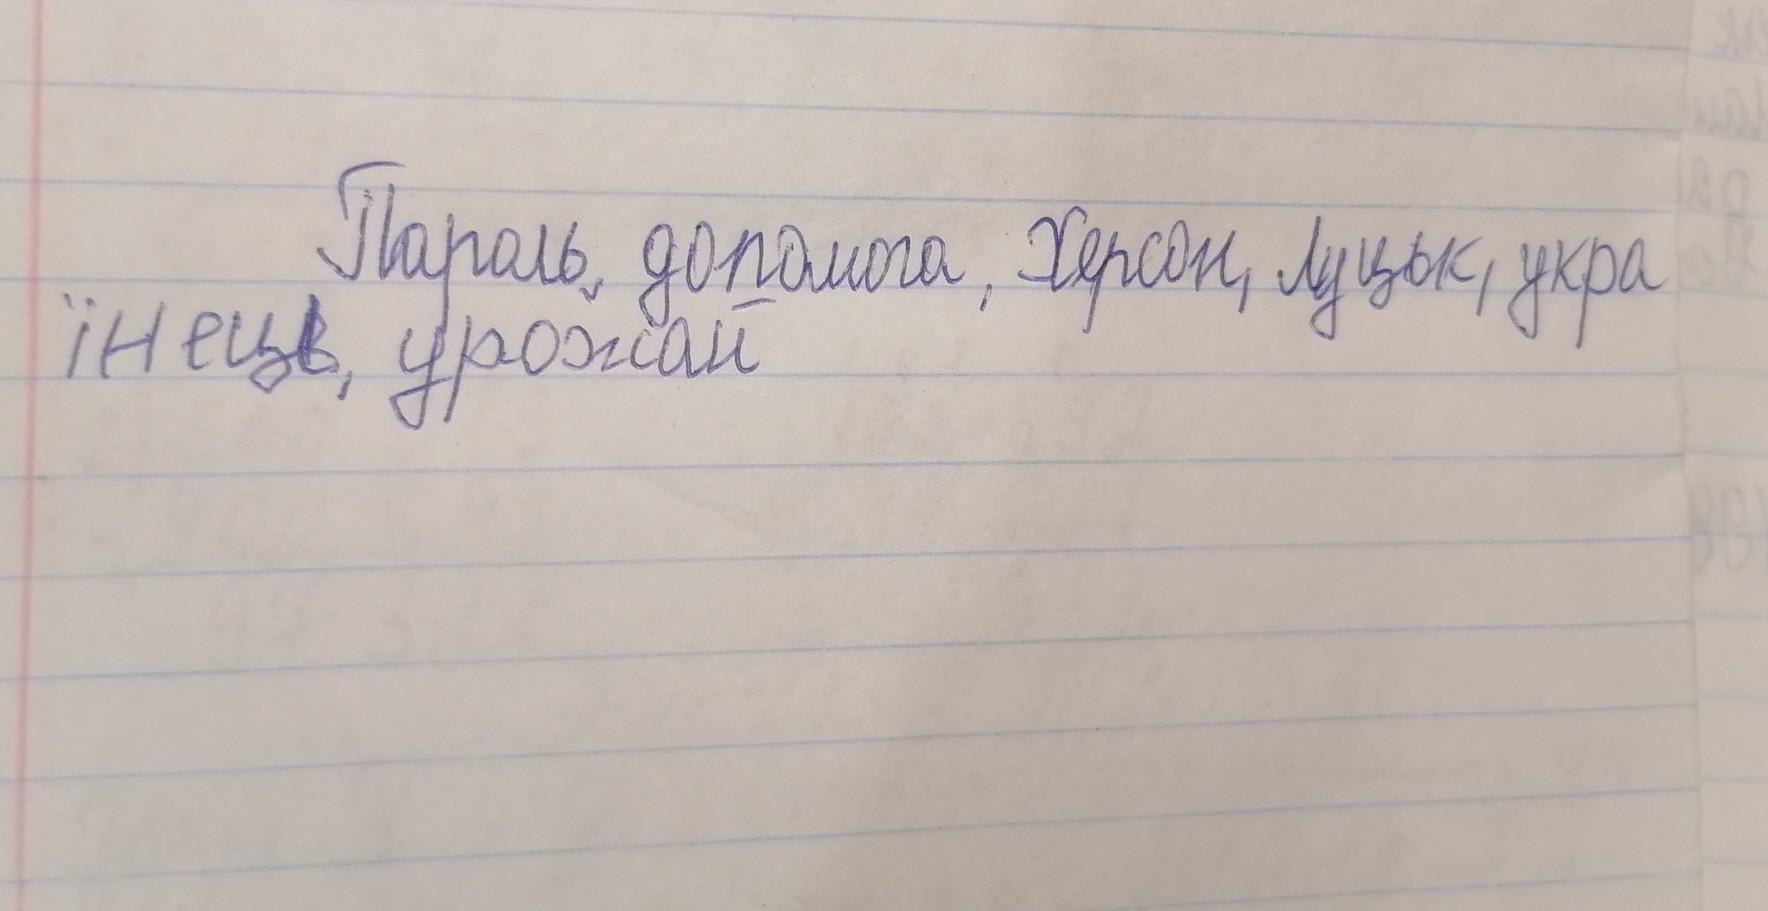 Пароль, допомога, Херсон, Луцьк, укра
їнець, урожай